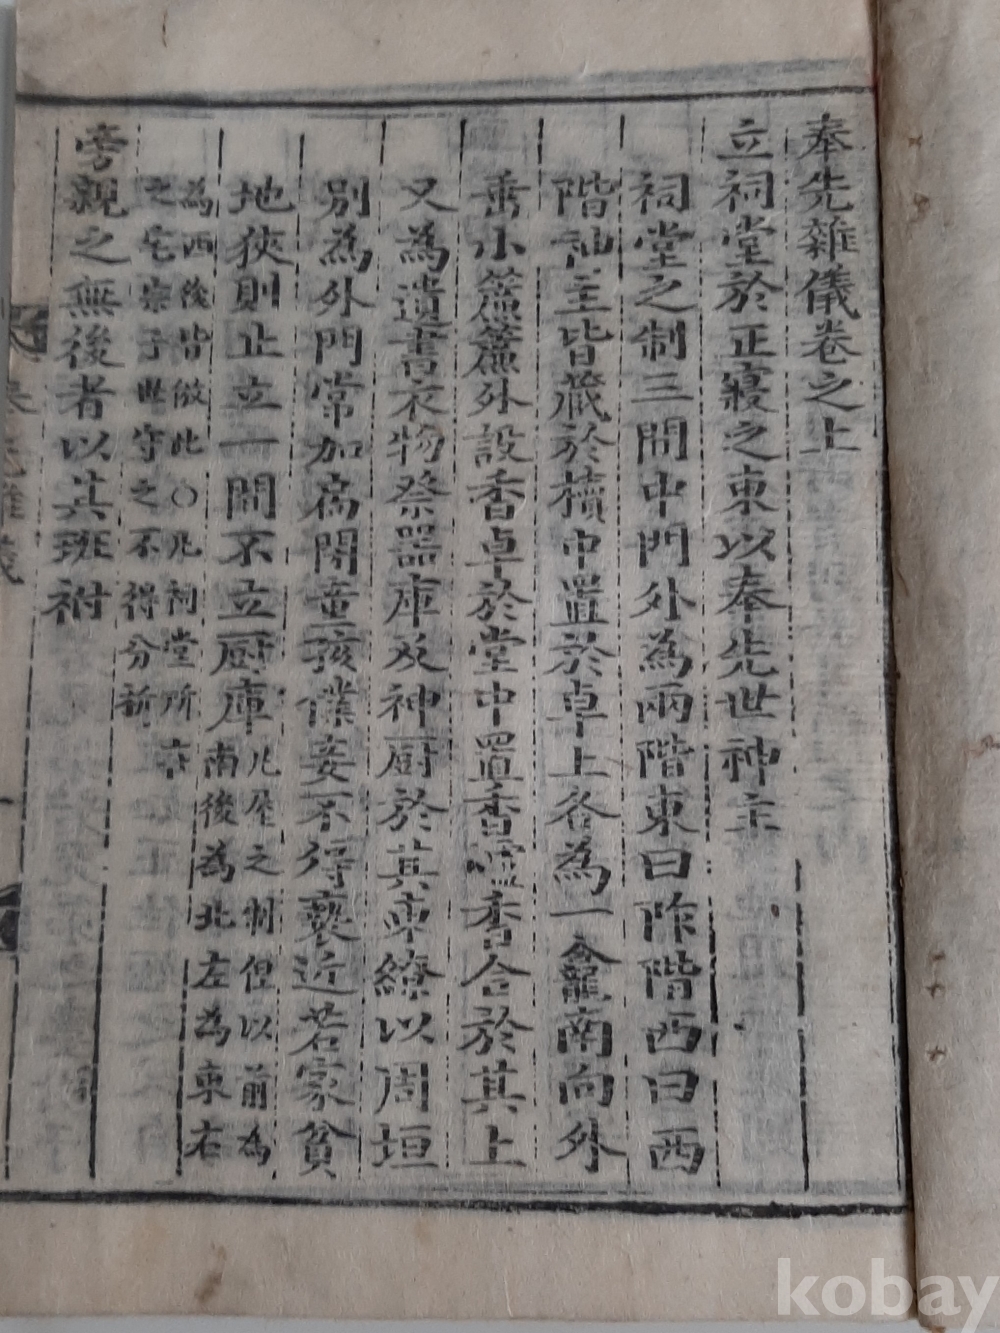 奉先雜儀卷之上
立祠堂於正寢之東以奉先世神主
祠堂之制三間中門外為兩階東曰阼階西曰西
階神主皆藏於櫝中置於卓上各為一龕南向外
垂小簾簾外設香卓於堂中置香爐香合於其上
又為遺書衣物祭器庫及神厨於其東繚以周垣
別為外門常加扃閉童孩僕妾不得褻近若家貧
地狹則止立一間不立厨庫
凡屋之制但以前為
南後為北左為東右
為西後皆倣此○凡祠堂所在
之宅宗子世守之不得分析
旁親之無後者以其班祔
奉先雜儀
一
kobay